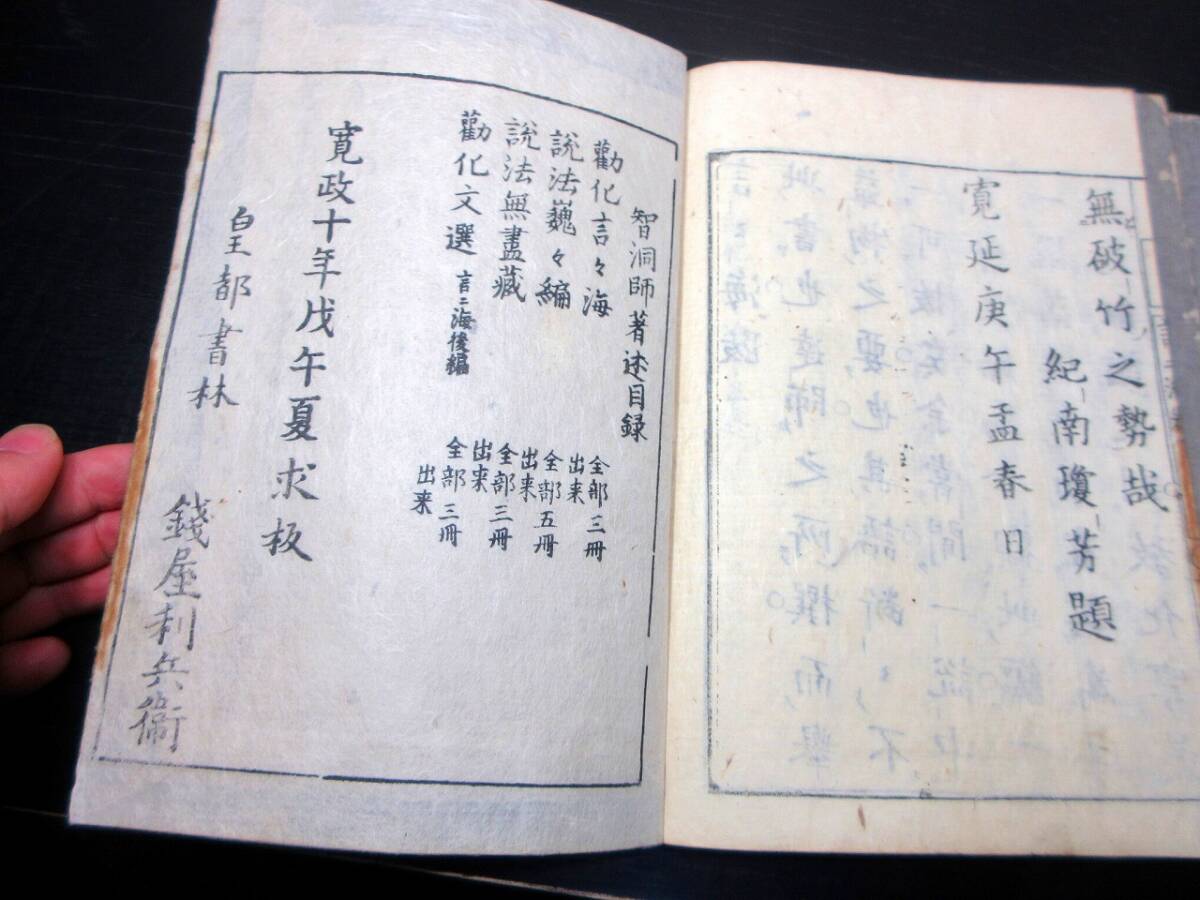 無破竹之勢哉
紀南瓊芳題
寛延庚午孟春日
智洞師著述目録
勸化言々海 全部三冊 出来
説法巍々編 全部五冊 出来
説法無盡藏 全部三冊 出来
勸化文選 言ニ海後編 全部三冊 出来
寛政十年戊午夏求板
皇都書林 錢屋利兵衞